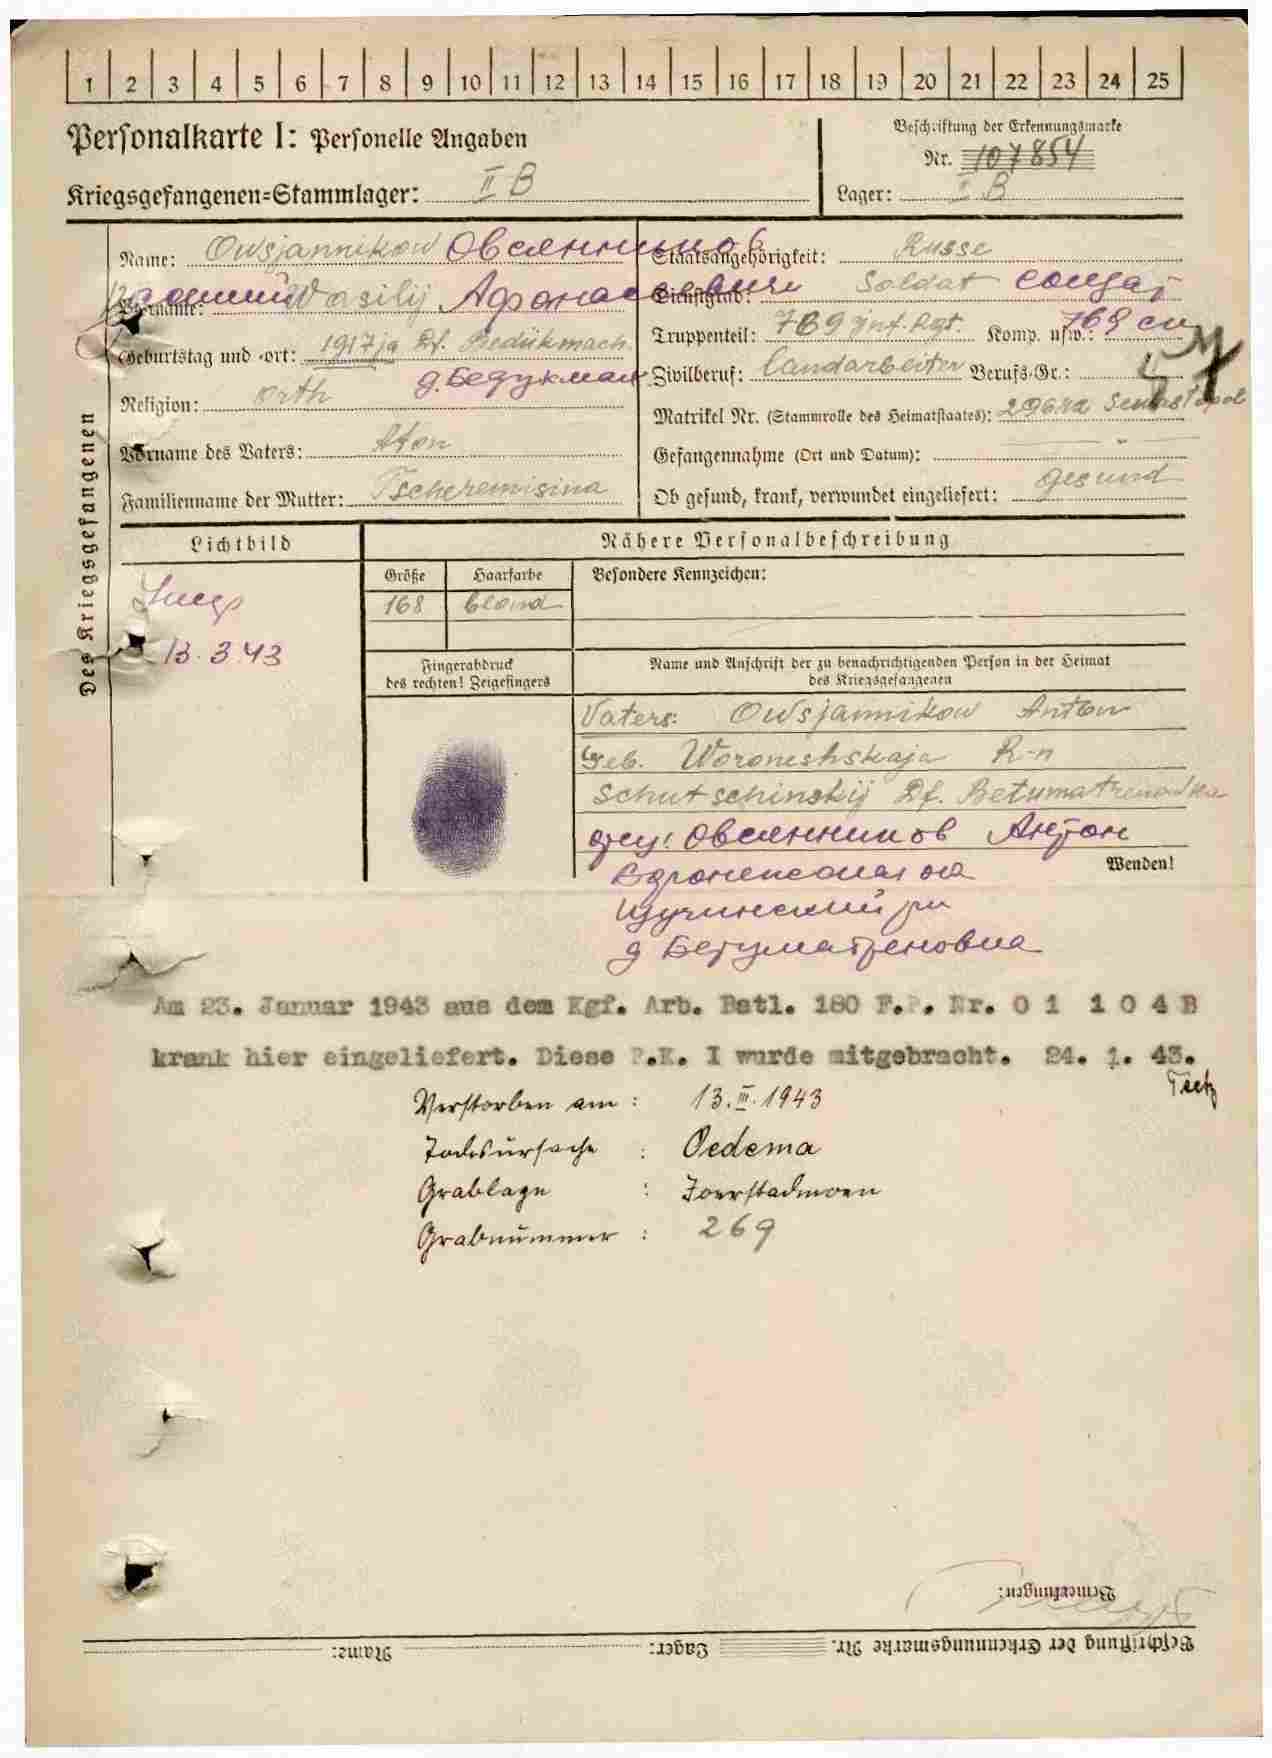 1 2 3 4 5 6 7 8 9 10 11 12 13 14 15 16 17 18 19 20 21 22 23 24 25
Personalkarte I: Personelle Angaben
Beschriftung der Erkennungsmarke
Nr. 107854
Kriegsgefangenen=Stammlager: II B
Lager: II B
Des Kriegsgefangenen
Name: Owsjannikow Овсянников
Staatsangehörigkeit: Russe
Vorname: Wasilij Афонасьевич
Dienstgrad: Soldat солдат
Geburtstag und -ort: 1917 ja Df. Bedükmach
Truppenteil: 769 Inf. Rgt. Komp. usw.: 769 сп
д. Бедукмах
Religion: orth
Zivilberuf: Landarbeiter Berufs-Gr.:
Matrikel Nr. (Stammrolle des Heimatstaates):
Vorname des Vaters: Afon
Gefangennahme (Ort und Datum):
Familienname der Mutter: Tscheremisina
Ob gesund, krank, verwundet eingeliefert: gesund
Lichtbild
Nähere Personalbeschreibung
Größe Haarfarbe Besondere Kennzeichen:
168 blond
13.3.43
Fingerabdruck
des rechten! Zeigefingers
Name und Anschrift der zu benachrichtigenden Person in der Heimat
des Kriegsgefangenen
Vaters: Owsjannikow Anton
Geb. Woroneshskaja R-n
Schutschinskij Df. Betumatrenowka
отец: Овсянников Антон
Wenden!
Щучинский рн
д Бетуматреновка
Am 23. Januar 1943 aus dem Kgf. Arb. Batl. 180 F.P. Nr. 0 1 1 0 4 B
krank hier eingeliefert. Diese P.K. I wurde mitgebracht. 24. 1. 43.
Verstorben am : 13.III.1943
Todesursache : Oedema
Grablage : Joerstadmoen
Grabnummer : 269
Bemerkungen:
Beschriftung der Erkennungsmarke Nr. Lager: Name: